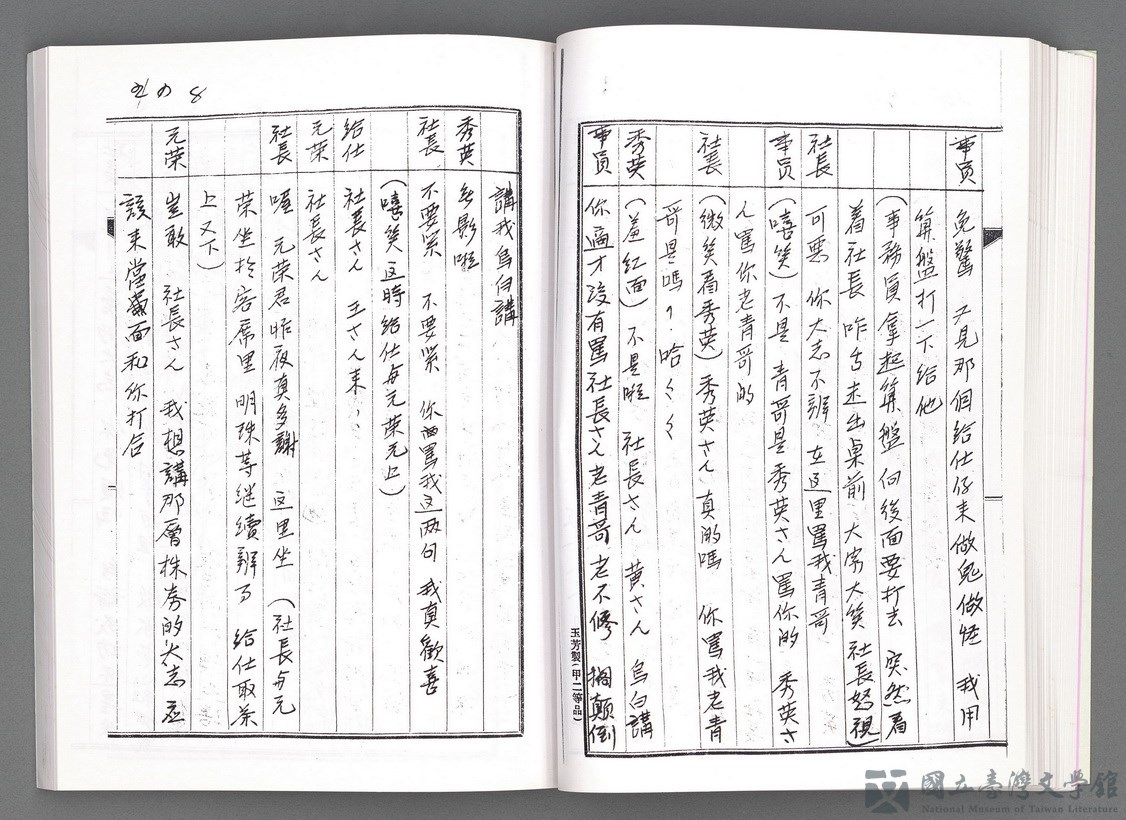 事員 免驚 又見那個給仕仔来做鬼做怪 我用
算盤打一下給他
(事務員拿起算盤 向後面要打去 突然看
着社長 咋舌走出桌前 大家大笑 社長怒視)
社長 可悪 你大志不辦 在這里罵我青哥
事員 (嘻笑) 不是 青哥是秀英さん罵你的 秀英さ
ん罵你老青哥的
社長 (微笑看秀英) 秀英さん 真的嗎 你罵我老青
哥是嗎? 哈〱〱
秀英 (羞紅面) 不是啦 社長さん 黄さん 烏白講
事員 你這才没有罵社長さん老青哥 老不修 掲顛倒
講我烏白講
秀英 無影啦
社長 不要緊 不要緊 你両罵我这两句 我真歡喜
(嘻笑 这時給仕与元荣元上)
給仕 社長さん 王さん来、、
元荣 社長さん
社長 喧 元荣君昨夜真多謝 这里坐 (社長与元
荣坐於客席里 明珠等继续辦事 給仕取茶
上又下)
元荣 豈敢 社長さん 我想講那層株券的大志 应
該来當面和你打合
玉芳製(甲二等品)
NO 8
國立臺灣文學館
National Museum of Taiwan Literature